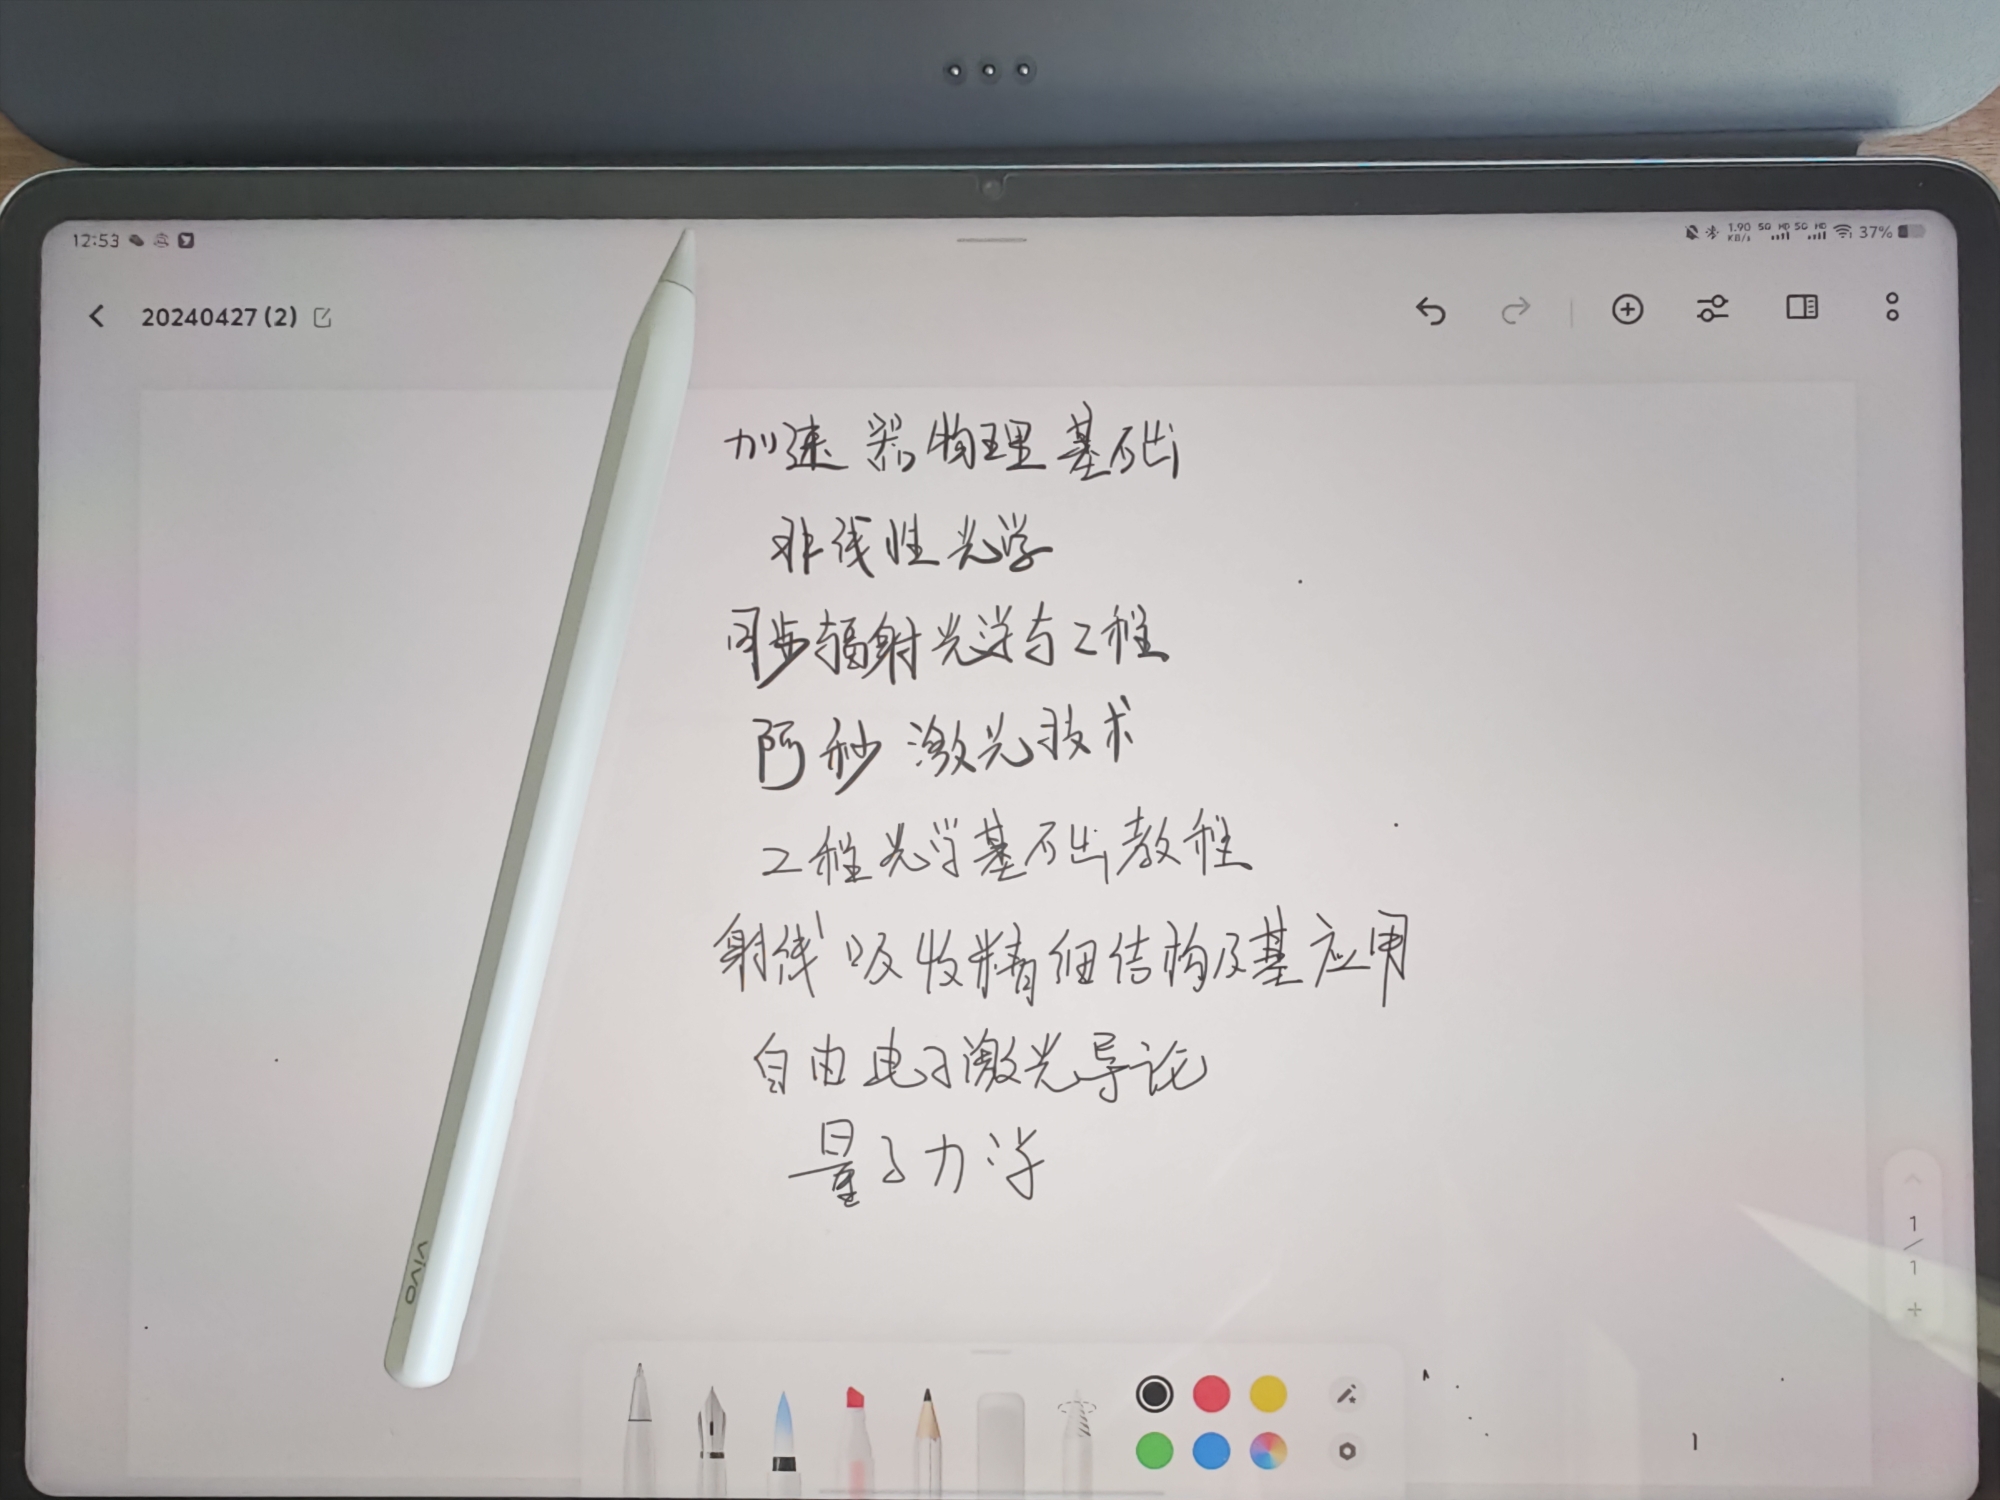 12:53
1.90 KB/s 5G HD 5G HD 37%
20240427 (2)
加速器物理基础
非线性光学
同步辐射光学与工程
阿秒激光技术
工程光学基础教程
射线吸收精细结构及基应用
自由电子激光导论
量子力学
vivo
1
/
1